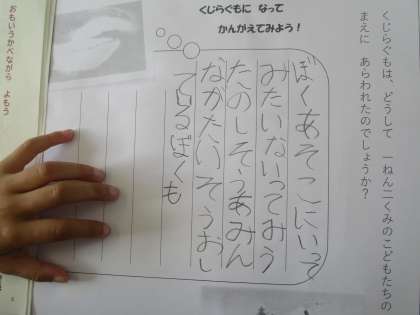 くじらぐもは、どうして 一ねん二くみのこどもたちの
まえに あらわれたのでしょうか？
くじらぐもに なって
かんがえてみよう！
ぼくあそこにいって
みたいないってみう
たのしそうあみん
ながたいそうおし
てるぼくも
おもいうかべながら よもう